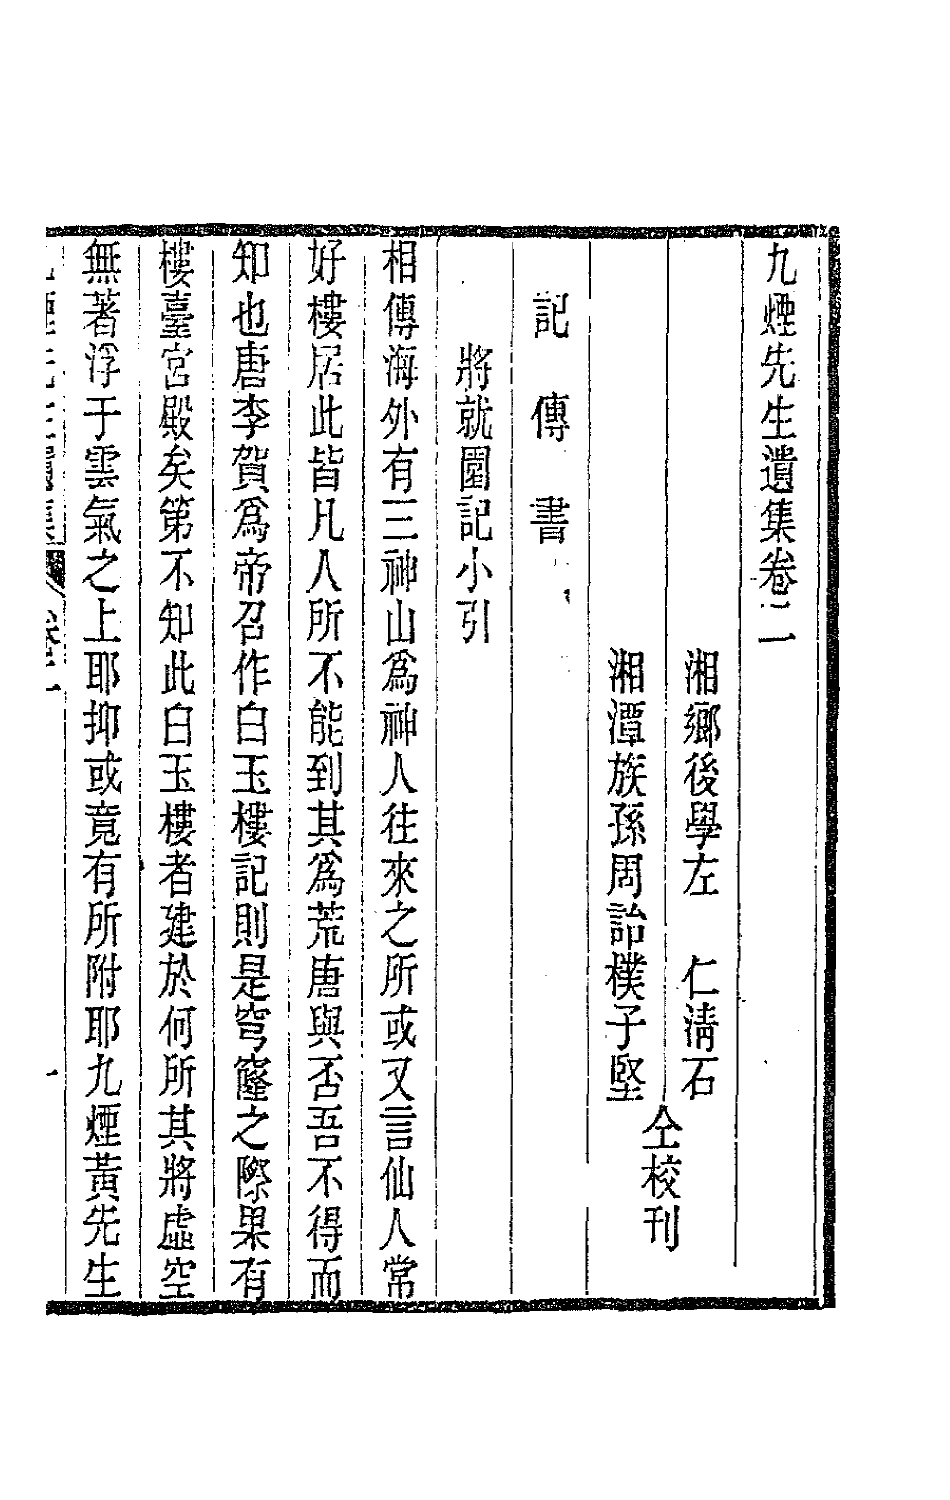 九煙先生遺集卷二
湘鄉後學左　仁清石
湘潭族孫周詒樸子堅
仝校刊
記　傳　書
將就園記小引
相傳海外有三神山爲神人往來之所或又言仙人常
好樓居此皆凡人所不能到其爲荒唐與否吾不得而
知也唐李賀爲帝召作白玉樓記則是穹窿之際果有
樓臺宮殿矣第不知此白玉樓者建於何所其將虛空
無著浮于雲氣之上耶抑或竟有所附耶九煙黃先生